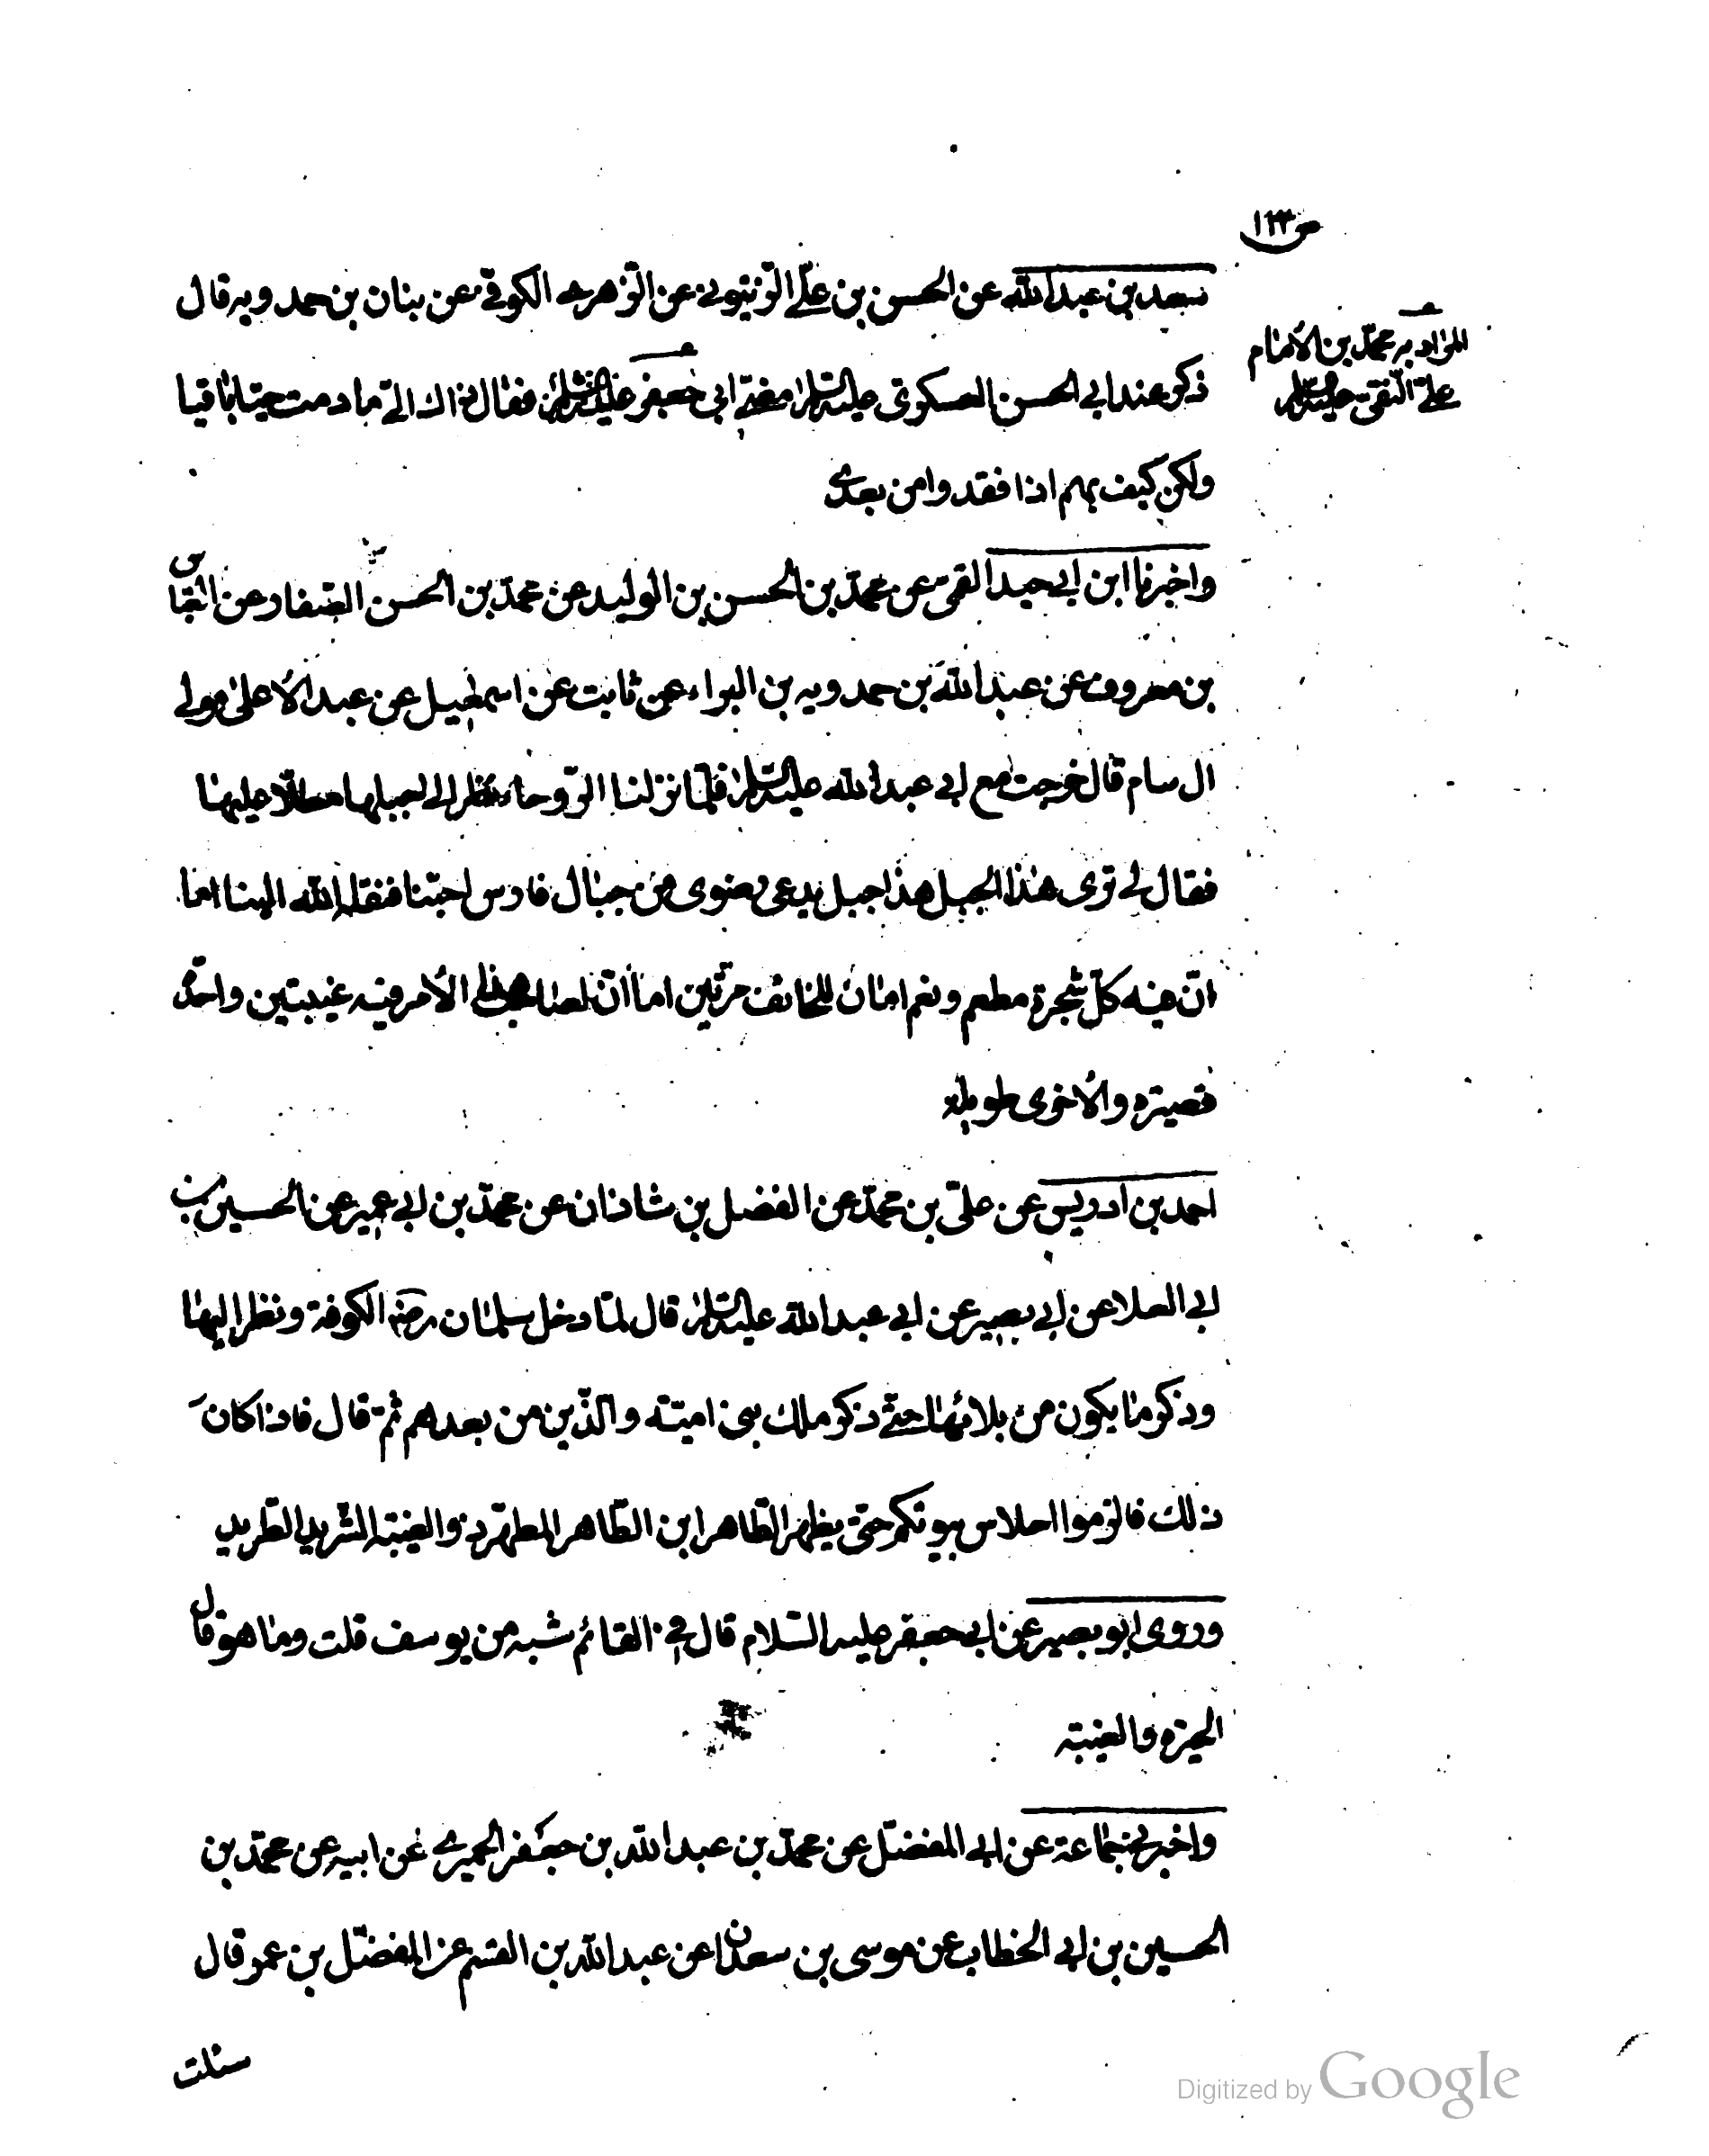 ص١٢٣
سعد بن عبد الله عن الحسن بن علّى الزيتونى عن الزهرى الكوفى عن بنان بن حمدويه قال
المراد به محمّد بن الأمام
علىّ النّقى عليه السّلم
ذكر عند ابى الحسن العسكرى عليه السّلم مضىّ ابى جعفر عليه السّلم فقال ذاك الىّ ما دمت حيّا باقيا
ولكن كيف بهم اذا فقدوا من بعدى
واخبرنا ابن ابى جيد القمى عن محمّد بن الحسن بن الوليد عن محمّد بن الحسن الصّفار عن العبّاس
بن معروف عن عبد الله بن حمدويه بن البراء عن ثابت عن اسمعيل عن عبد الأعلى مولى
ال سام قال خرجت مع ابى عبد الله عليه السّلم فلمّا نزلنا الرّوحاء نظر الى جبلها مطلّا عليها
فقال لى ترى هذا الجبل هذا جبل يدعى رضوى من جبال فارس احبّنا فنقله الله الينا اما
انّ فيه كلّ شجرة مطعم ونعم امان للخائف مرّتين اما انّ لصاحب هذا الأمر فيه غيبتين واحدة
قصيرة والأخرى طويلة
احمد بن ادريس عن علىّ بن محمّد عن الفضل بن شاذان عن محمّد بن ابى عمير عن الحسين بن
ابى العلا عن ابى بصير عن ابى عبد الله عليه السّلم قال لمّا دخل سلمان رضه الكوفة ونظر اليها
وذكر ما يكون من بلائها حتّى ذكر ملك بنى اميّة والّذين من بعدهم ثمّ قال فاذا كان
ذلك فالزموا احلاس بيوتكم حتّى يظهر الطّاهر ابن الطّاهر المطهّر ذو الغيبة الشّريد الطّريد
وروى ابو بصير عن ابى جعفر عليه السّلام قال فى القائم شبه من يوسف قلت وما هو قال
الحيرة والغيبة
واخبرنى جماعة عن ابى المفضّل عن محمّد بن عبد الله بن جعفر الحميرى عن ابيه عن محمّد بن
الحسين بن ابى الخطاب عن موسى بن سعدان عن عبد الله بن القسم عن المفضّل بن عمر قال
سئلت
Digitized by Google